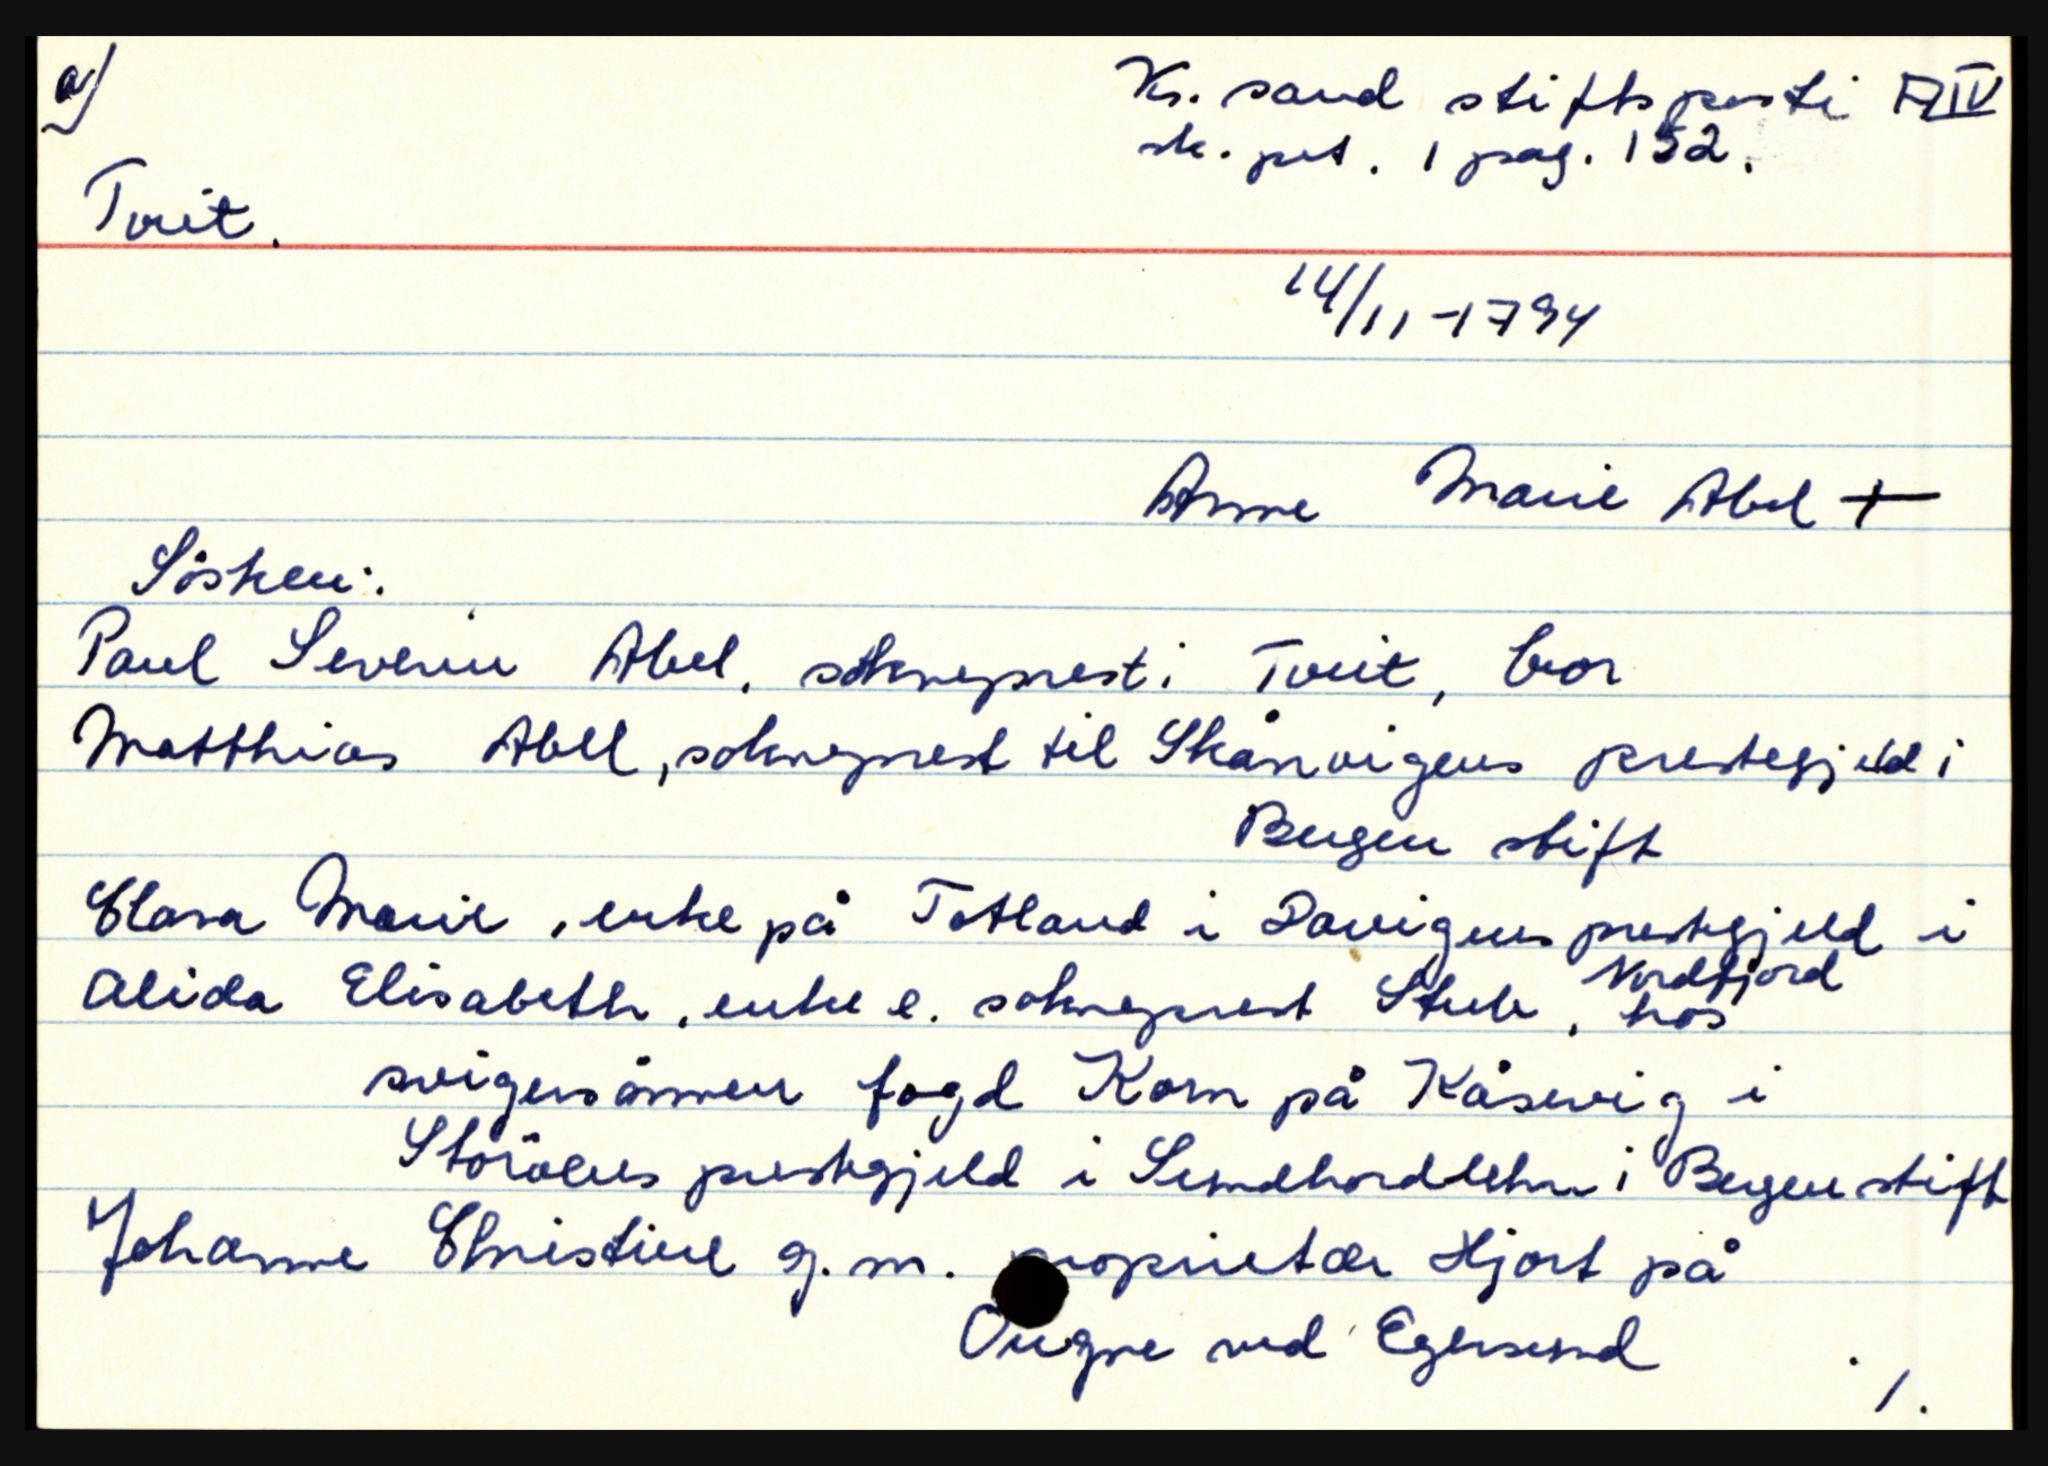 a)
Kr. sand stiftsprosti A IV
sk. prt. 1 pag. 152.
Tveit.
14/11-1794
Anne Marie Abel +
Søsken:
Paul Severin Abel, sokneprest i Tveit, bor
Matthias Abel, sokneprest til Skånvigens prestegjeld i
Bergen stift
Clara Marie, enke på Totland i Davigens prestegjeld i
Nordfjord
Alida Elisabeth, enke e. sokneprest Stub, hos
svigersønnen fogd Korn på Kåsevig i
Storøens prestegjeld i Sundhordlehn i Bergen stift
Johanne Christine g.m. proprietær Hjort på
Ougne ved Egersund
/.